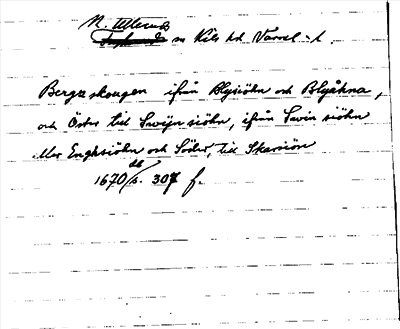 N. Ullerud
sn Kils hd Värml. l.
Bergzskougen ifrån Blysiöhn och Blyåhna,
och Öster till Swijnsiöhn, ifrån Swinsiöhn
eller Enghsiöhn och Söder, till Skarsiön
1670 db. s. 307 f.